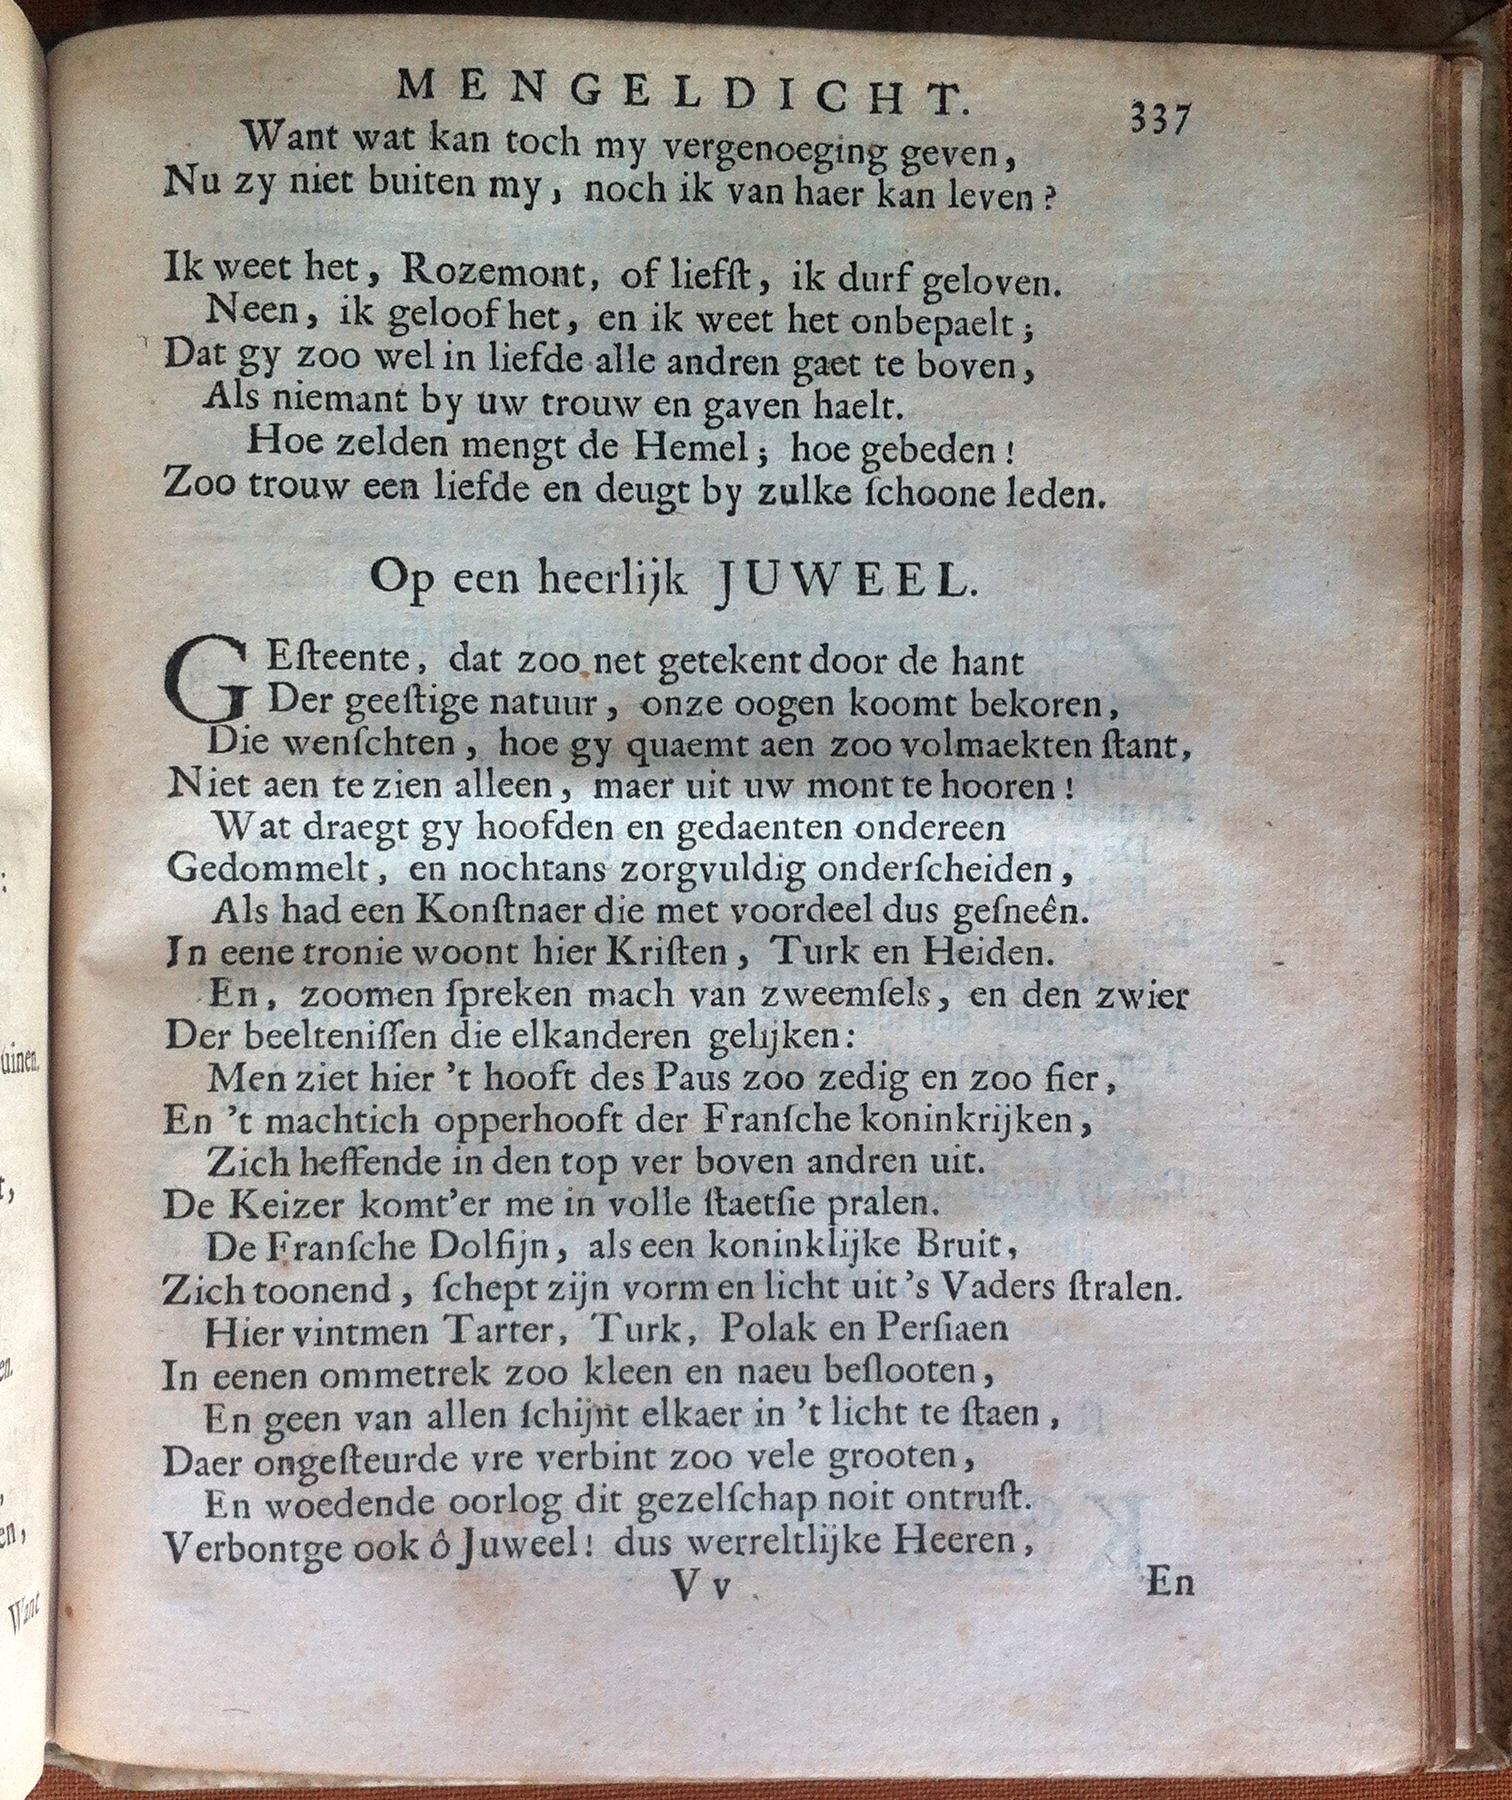 MENGELDICHT. 337
Want wat kan toch my vergenoeging geven,
Nu zy niet buiten my, noch ik van haer kan leven?
Ik weet het, Rozemont, of liefſt, ik durf geloven.
Neen, ik geloof het, en ik weet het onbepaelt;
Dat gy zoo wel in liefde alle andren gaet te boven,
Als niemant by uw trouw en gaven haelt.
Hoe zelden mengt de Hemel; hoe gebeden!
Zoo trouw een liefde en deugt by zulke ſchoone leden.
Op een heerlijk JUWEEL.
GEſteente, dat zoo net getekent door de hant
Der geeſtige natuur, onze oogen koomt bekoren,
Die wenſchten, hoe gy quaemt aen zoo volmaekten ſtant,
Niet aen te zien alleen, maer uit uw mont te hooren!
Wat draegt gy hoofden en gedaenten ondereen
Gedommelt, en nochtans zorgvuldig onderſcheiden,
Als had een Konſtnaer die met voordeel dus geſneên.
In eene tronie woont hier Kriſten, Turk en Heiden.
En, zoomen ſpreken mach van zweemſels, en den zwier
Der beelteniſſen die elkanderen gelijken:
Men ziet hier 't hooft des Paus zoo zedig en zoo fier,
En 't machtich opperhooft der Franſche koninkrijken,
Zich heffende in den top ver boven andren uit.
De Keizer komt'er me in volle ſtaetſie pralen.
De Franſche Dolfijn, als een koninklijke Bruit,
Zich toonend, ſchept zijn vorm en licht uit 's Vaders ſtralen.
Hier vintmen Tarter, Turk, Polak en Perſiaen
In eenen ommetrek zoo kleen en naeu beſlooten,
En geen van allen ſchijnt elkaer in 't licht te ſtaen,
Daer ongeſteurde vre verbint zoo vele grooten,
En woedende oorlog dit gezelſchap noit ontruſt.
Verbontge ook ô Juweel! dus werreltlijke Heeren,
Vv En
uinen.
Want